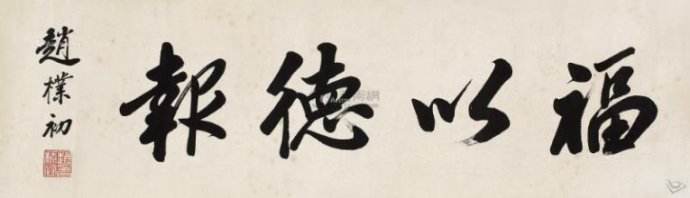 福以德報
趙樸初